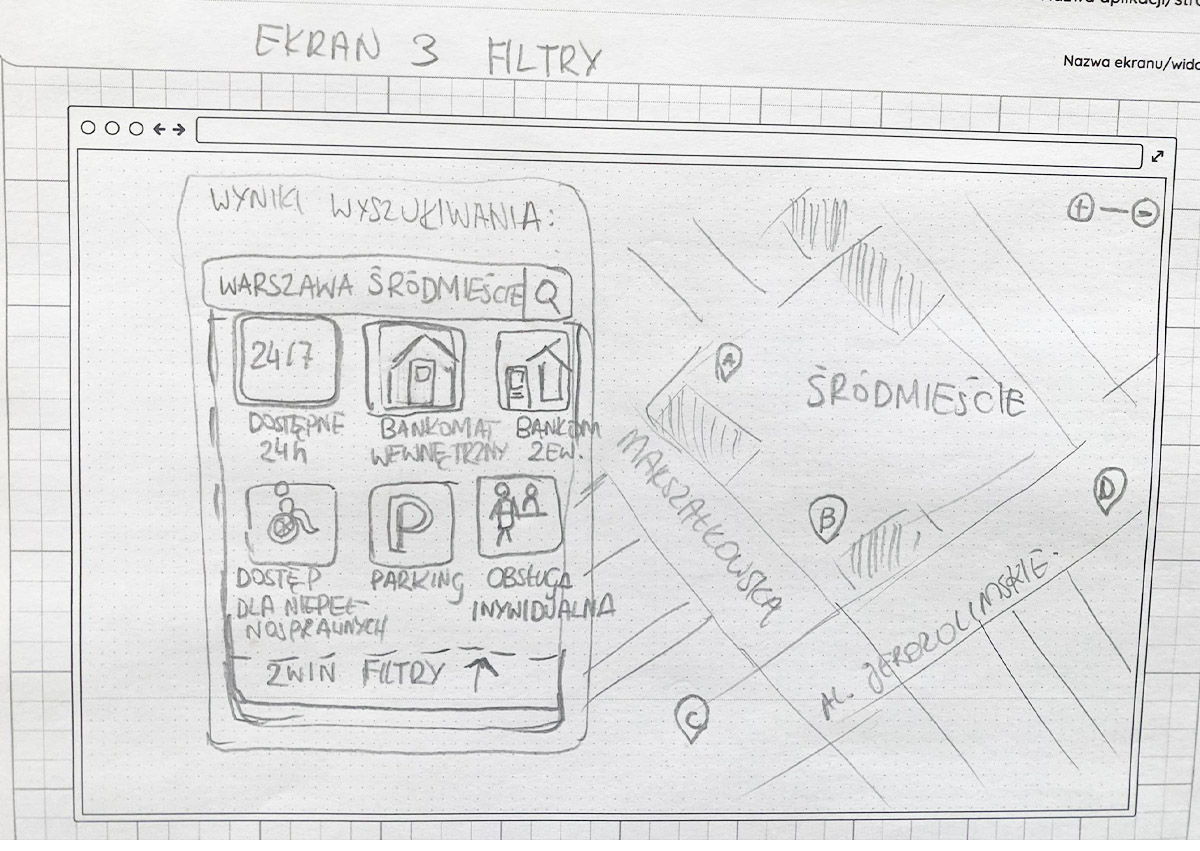 EKRAN 3 FILTRY
Nazwa ekranu/wido
WYNIKI WYSZUKIWANIA:
WARSZAWA ŚRÓDMIEŚCIE
24/7
DOSTĘPNE
24h
BANKOMAT
WEWNĘTRZNY
BANKOM
ZEW.
P
DOSTĘP
DLA NIEPEŁ-
NOSPRAWNYCH
PARKING
OBSŁUGA
INYWIDUALNA
ZWIŃ FILTRY ↑
A
ŚRÓDMIEŚCIE
MARSZAŁKOWSKA
B
D
AL. JEROZOLIMSKIE.
C